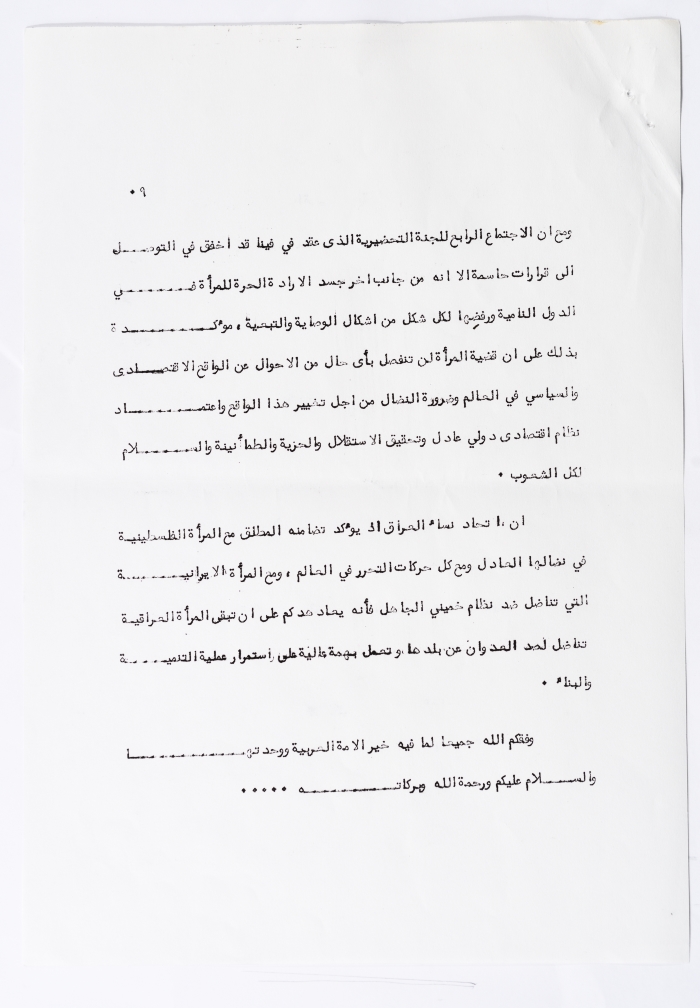 ٩ ٠
ومع ان الاجتماع الرابع للجنة التحضيرية الذى عقد في فينا قد أخفق في التوصل
الى قرارات حاسمة الا انه من جانب اخر جسد الارادة الحرة للمرأة في
الدول النامية ورفضها لكل شكل من اشكال الوصاية والتبعية ، مؤكدة
بذلك على ان قضية المرأة لن تنفصل بأى حال من الاحوال عن الواقع الاقتصادى
والسياسي في العالم وضرورة النضال من اجل تغيير هذا الواقع واعتماد
نظام اقتصادى دولي عادل وتحقيق الاستقلال والحرية والطمأنينة والسلام
لكل الشعوب ٠
ان اتحاد نساء العراق اذ يؤكد تضامنه المطلق مع المرأة الفلسطينية
في نضالها العادل ومع كل حركات التحرر في العالم ، ومع المرأة الايرانية
التي تناضل ضد نظام خميني الجاهل فأنه يعاهدكم على ان تبقى المرأة العراقية
تناضل لصد العدوان عن بلدها ، وتعمل بهمة عالية على استمرار عملية التنمية
والبناء ٠
وفقكم الله جميعا لما فيه خير الامة العربية ووحدتها
والسلام عليكم ورحمة الله وبركاته ٠٠٠٠٠